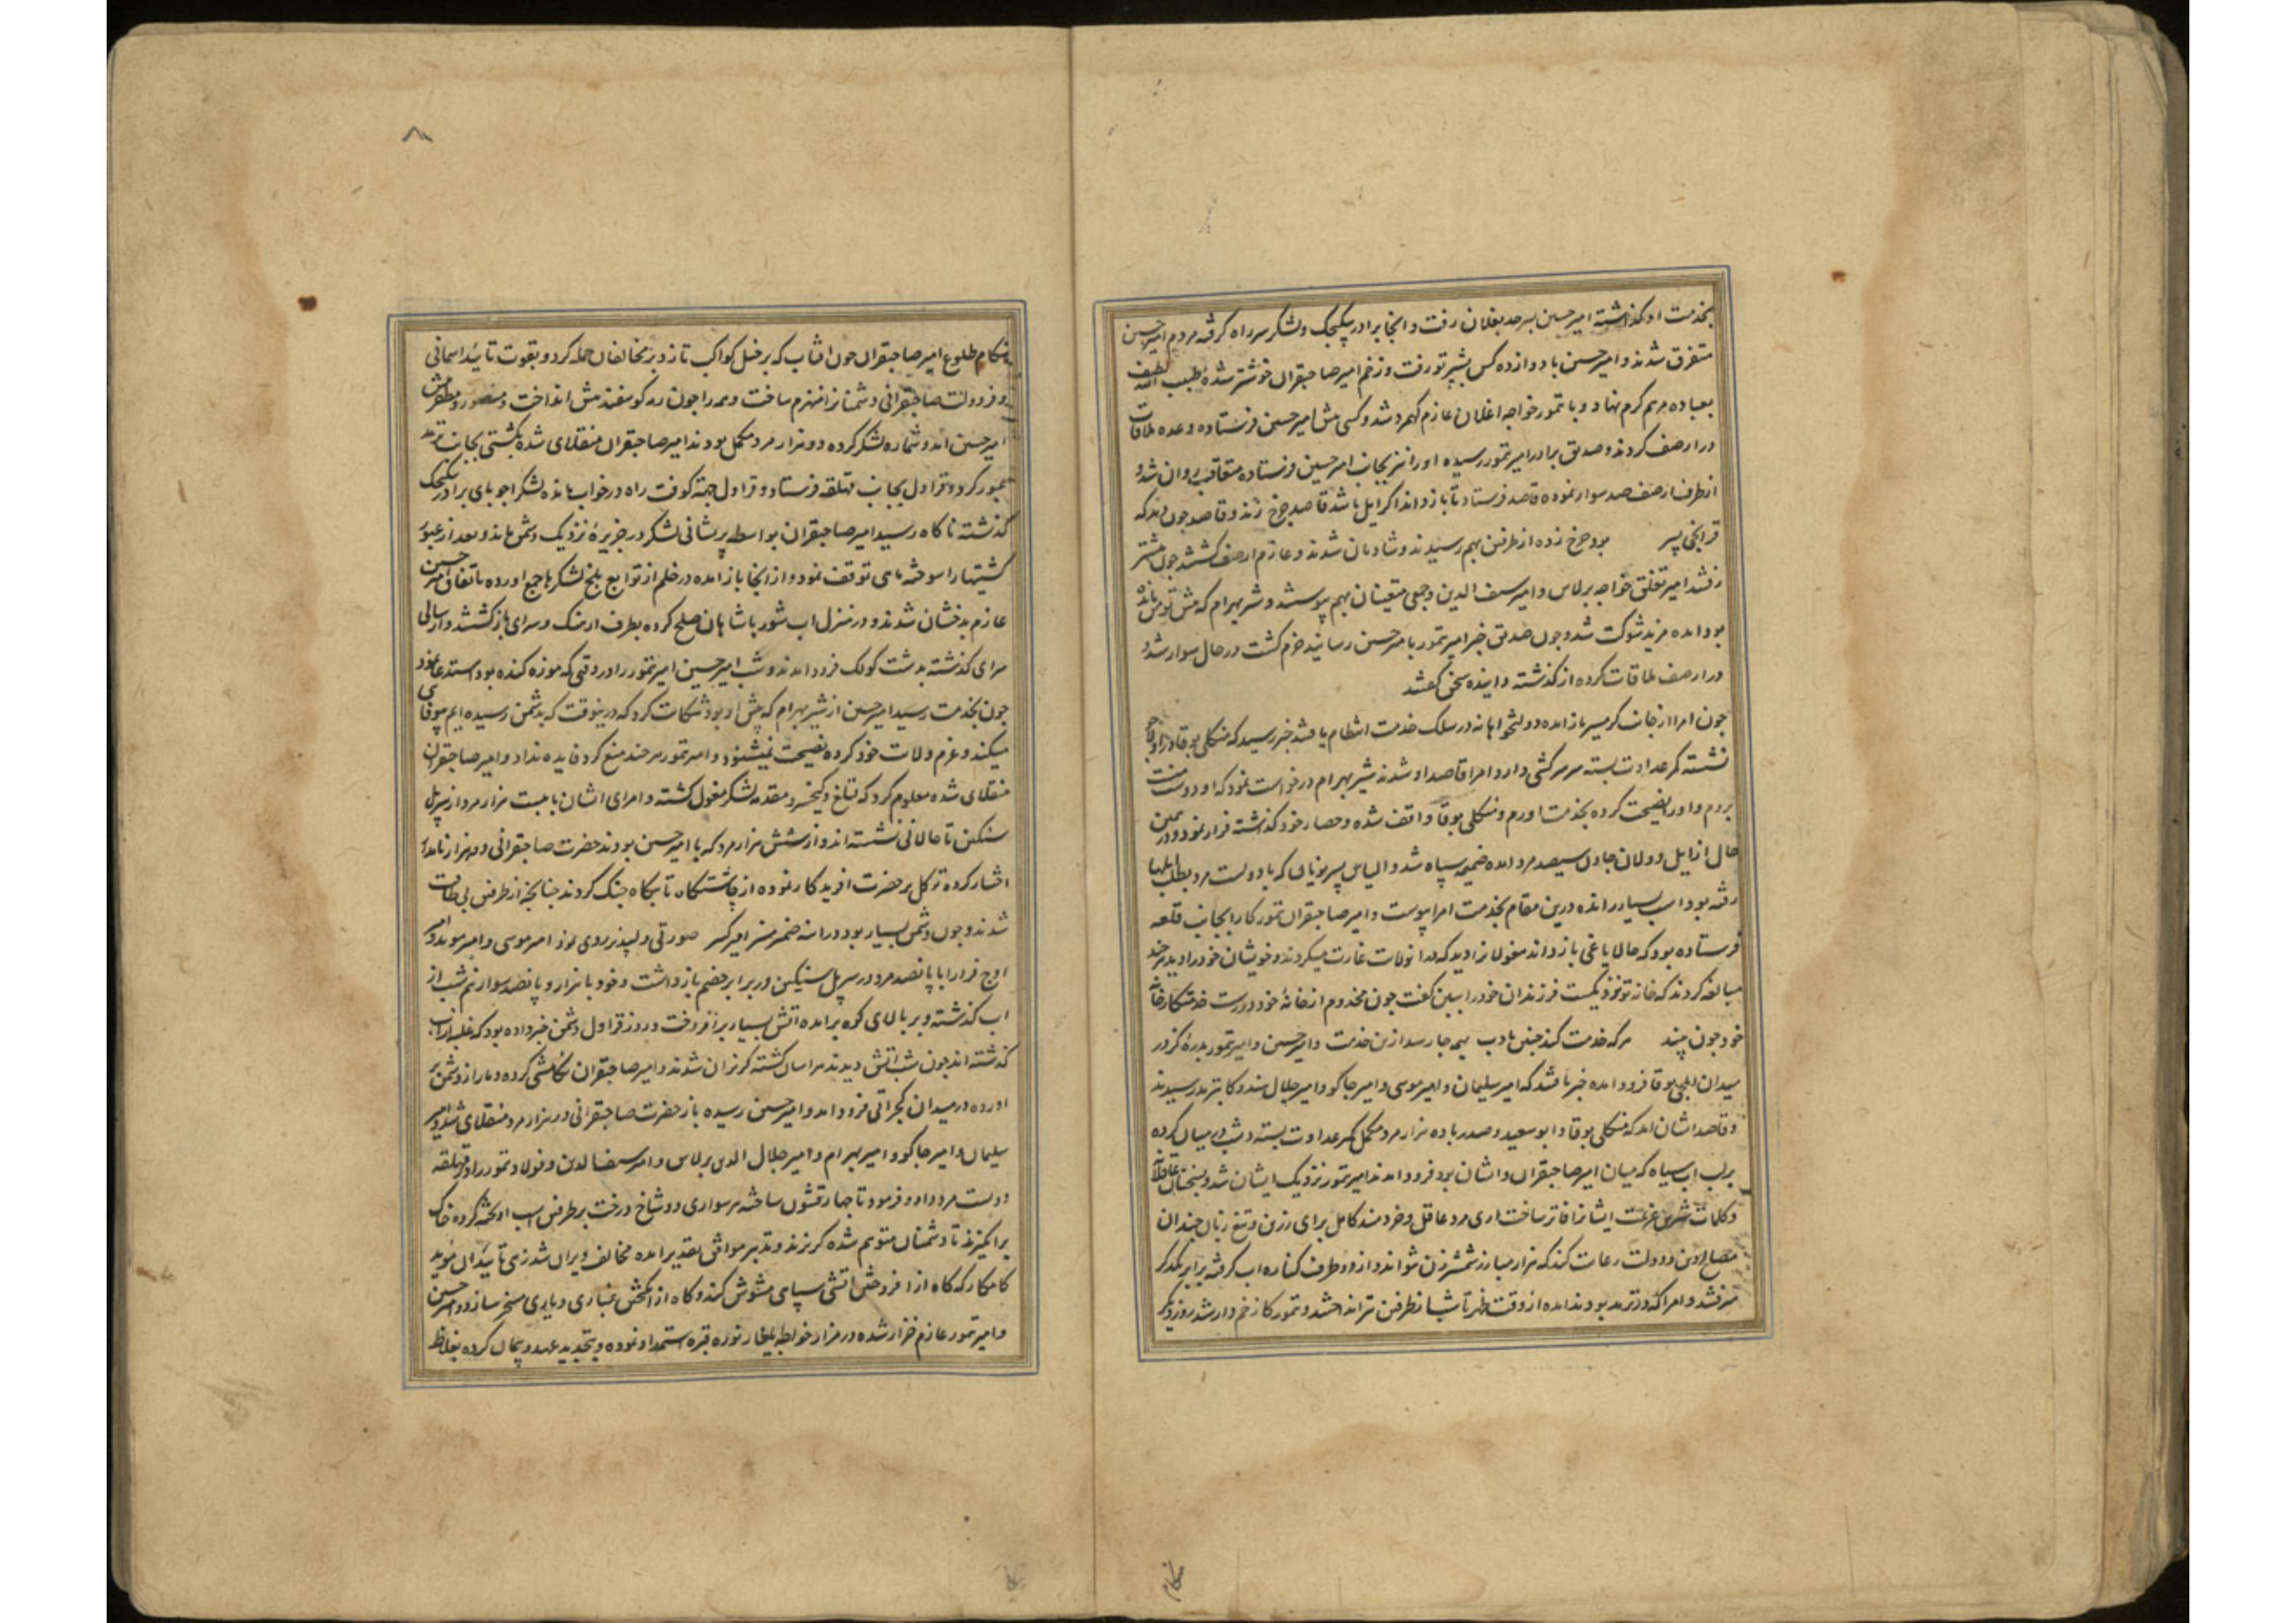 بخدمت او گذاشته امیر حسین بسرحد بغلان رفت و انجا برادر بیکیجک و لشکر سر راه گرفته مردم امیر حسین
متفرق شدند و امیر حسین با دوازده کس بشبرتو رفت و زخم امیر صاحبقران خوشتر شده طبیب لطیف الله
بعباده مرهم کرم نهاد و با تمور خواجه اغلان عازم کهمرد شد و کسی پیش امیر حسین فرستاده وعده ملاقات
در ارصف کردند و صدیق برادر امیر تمور رسیده او را نیز بجانب امیر حسین فرستاده متعاقب روان شد و
از طرف ارصف صد سوار نموده قاصد فرستاد تا باز داند اگر ایل باشد قاصد چرخ زند و قاصد چون دید که
قرانچی پسر بود چرخ زده از طرفین بهم رسیدند و شادمان شدند و عازم ارصف گشتند چون پیشتر
رفتند امیر تغلق خواجه برلاس و امیر سیف الدین و جمعی متعینان بهم پیوستند و شیر بهرام که پیش تومن مانده
بود امده مزید شوکت شد و چون صدیق خبر امیر تمور بامیر حسین رسانید خرم گشت در حال سوار شد و
در ارصف ملاقات کرده از گذشته و اینده سخن گفتند
چون امرا از جانب گرمسیر باز امده دولتخواهانه در سلک خدمت انتظام یافتند خبر رسید که منکلی بوقا در
نشسته کمر عداوت بسته سر سرکشی دارد امرا قاصد او شدند شیر بهرام درخواست نمود که او دوست منست
بروم و او را نصیحت کرده بخدمت اورم و منکلی بوقا واقف شده و حصار خود گذاشته فرار نمود و در همین
حال از ایل دولان جاون سیصد مرد امده ضمیمه سپاه شد و الیاس پسر که با دویست مرد بطلب ایلها
رفته بود اسب بسیار رانده درین مقام بخدمت امرا پیوست و امیر صاحبقران تمور کا را بجانب قلعه
فرستاده بود که حال یاغی باز داند مغولانرا دید که در ان ولات غارت میکردند و خویشان خود را دید هر چند
مبالغه کردند که خانه تو نزدیکست فرزندان خود را ببین گفت چون مخدوم از خانهٔ خود دورست خدمتکار خانه
خود چون بیند هر که خدمت کند چنین بادب بهمه جا رسد ازین خدمت و امیر حسین و امیر تمور بدرهٔ کز در
میدان ایلچی بوقا فرود امده خبر یافتند که امیر سلیمان و امیر موسی و امیر جاکو و امیر جلال هندوکا بترمد رسیدند
و قاصد ایشان امد که منکلی بوقا و ابو سعید و صدر باده هزار مرد مکمل کمر عداوت بسته و شب در میان کرده
بر لب اب سیاه که میان امیر صاحبقران و ایشان بود فرود امدند امیر تمور نزدیک ایشان شد و بسخنان عاقلانه
و کلمات شیرین عزیمت ایشانرا فاتر ساخت اری مرد عاقل و خردمند کامل برای رزین و تیغ زبان چندان
مصالح دین و دولت رعایت کند که هزار مبارز شمشیرزن نتوانند و از دو طرف کناره اب گرفته برابر یکدیگر
میرفتند و امرا که در ترمد بودند امده از وقت ظهر تا شب از طرفین تیر انداختند و تمور کا زخم دار شد روز دیگر
هنگام طلوع امیر صاحبقران چون افتاب که بر خیل کواکب تازد بر مخالفان حمله کرد و بقوت تایید اسمانی
و فر دولت صاحبقرانی دشمنانرا منهزم ساخت و همه را چون رمه گوسفند پیش انداخت و منصور و مظفر پیش
امیر حسین امد و شماره لشکر کرده دو هزار مرد مکمل بودند امیر صاحبقران منقلای شده بکشتی بجانب ترمد
عبور کرد و قراول بجانب قهلقه فرستاد و قراول جهة کوفت راه در خواب مانده لشکر اجونای برادر بیکیجک
گذشته ناگاه رسید امیر صاحبقران بواسطه پریشانی لشکر در جزیرهٔ نزدیک دشمن ماند و بعد از عبور
کشتیها را سوخته ماهی توقف نمود و از انجا باز امده در خلم از توابع بلخ لشکرها جمع اورده باتفاق امیر حسین
عازم بدخشان شدند و در منزل اب شور با شاهان صلح کرده بطرف ارهنک و سرای بازگشتند و از سالی
سرای گذشته بدشت کولک فرود امدند و شب امیر حسین امیر تمور را در وقتی که موزه کنده بود استدعا نمود
چون بخدمت رسید امیر حسین از شیر بهرام که پیش او بود شکایت کرد که درینوقت که بدشمن رسیده ایم بیوفای
میکند و عزم ولات خود کرده نصیحت نمیشنود و امیر تمور هر چند منع کرد فایده نداد و امیر صاحبقران
منقلای شده معلوم کرد که تغلغ و کیخسرو مقدمه لشکر مغول گشته و امرای ایشان با بیست هزار مرد از سر پل
سنکین تا جالانی نشسته اند و از شش هزار مرد که با امیر حسین بودند حضرت صاحبقرانی دو هزار نامدار
اختیار کرده توکل بر حضرت افریدکار نموده از چاشتکاه تا بیکاه جنک کردند چنانچه از طرفین بی طاقت
شدند و چون دشمن بسیار بود در اینه ضمیر منیر امیر کبیر صورتی دلپذیر روی نمود امیر موسی و امیر موید و
اوج قرا را با پانصد مرد در سر پل سنکین در برابر خصم باز داشت و خود با هزار و پانصد سوار نیم شب از
اب گذشته و بر بالای کوه برامده اتش بسیار برافروخت و روز قراول دشمن خبر داده بود که غلبه از اب
گذشته اند چون شب اتش دیدند هراسان گشته گریزان شدند و امیر صاحبقران تکامشی کرده دمار از دشمن بر
اورده در میدان کجراتی فرود امد و امیر حسین رسیده باز حضرت صاحبقرانی دو هزار مرد منقلای شد و امیر
سلیمان و امیر جاکو و امیر بهرام و امیر جلال الدین برلاس و امیر سیف الدین و فولاد و تمور را در قهلقه
دویست مرد داد و فرمود تا چهار قشون ساخته هر سواری دو شاخ درخت بر طرفین اسب اویخته کرده خاک
برانگیزند تا دشمنان متوهم شده گریزند و تدبیر موافق تقدیر امده مخالف ویران شد زهی تایید ان موید
کامکار که گاه از افروختن اتشی سپاهی مشوش کند و گاه از انگیختن غباری دیاری مسخر سازد و امیر حسین
و امیر تمور عازم خزار شده در مزار خواجه نوره قبره استمداد نموده و بتجدید عهد و پیمان کرده بغلاظ
هنگام